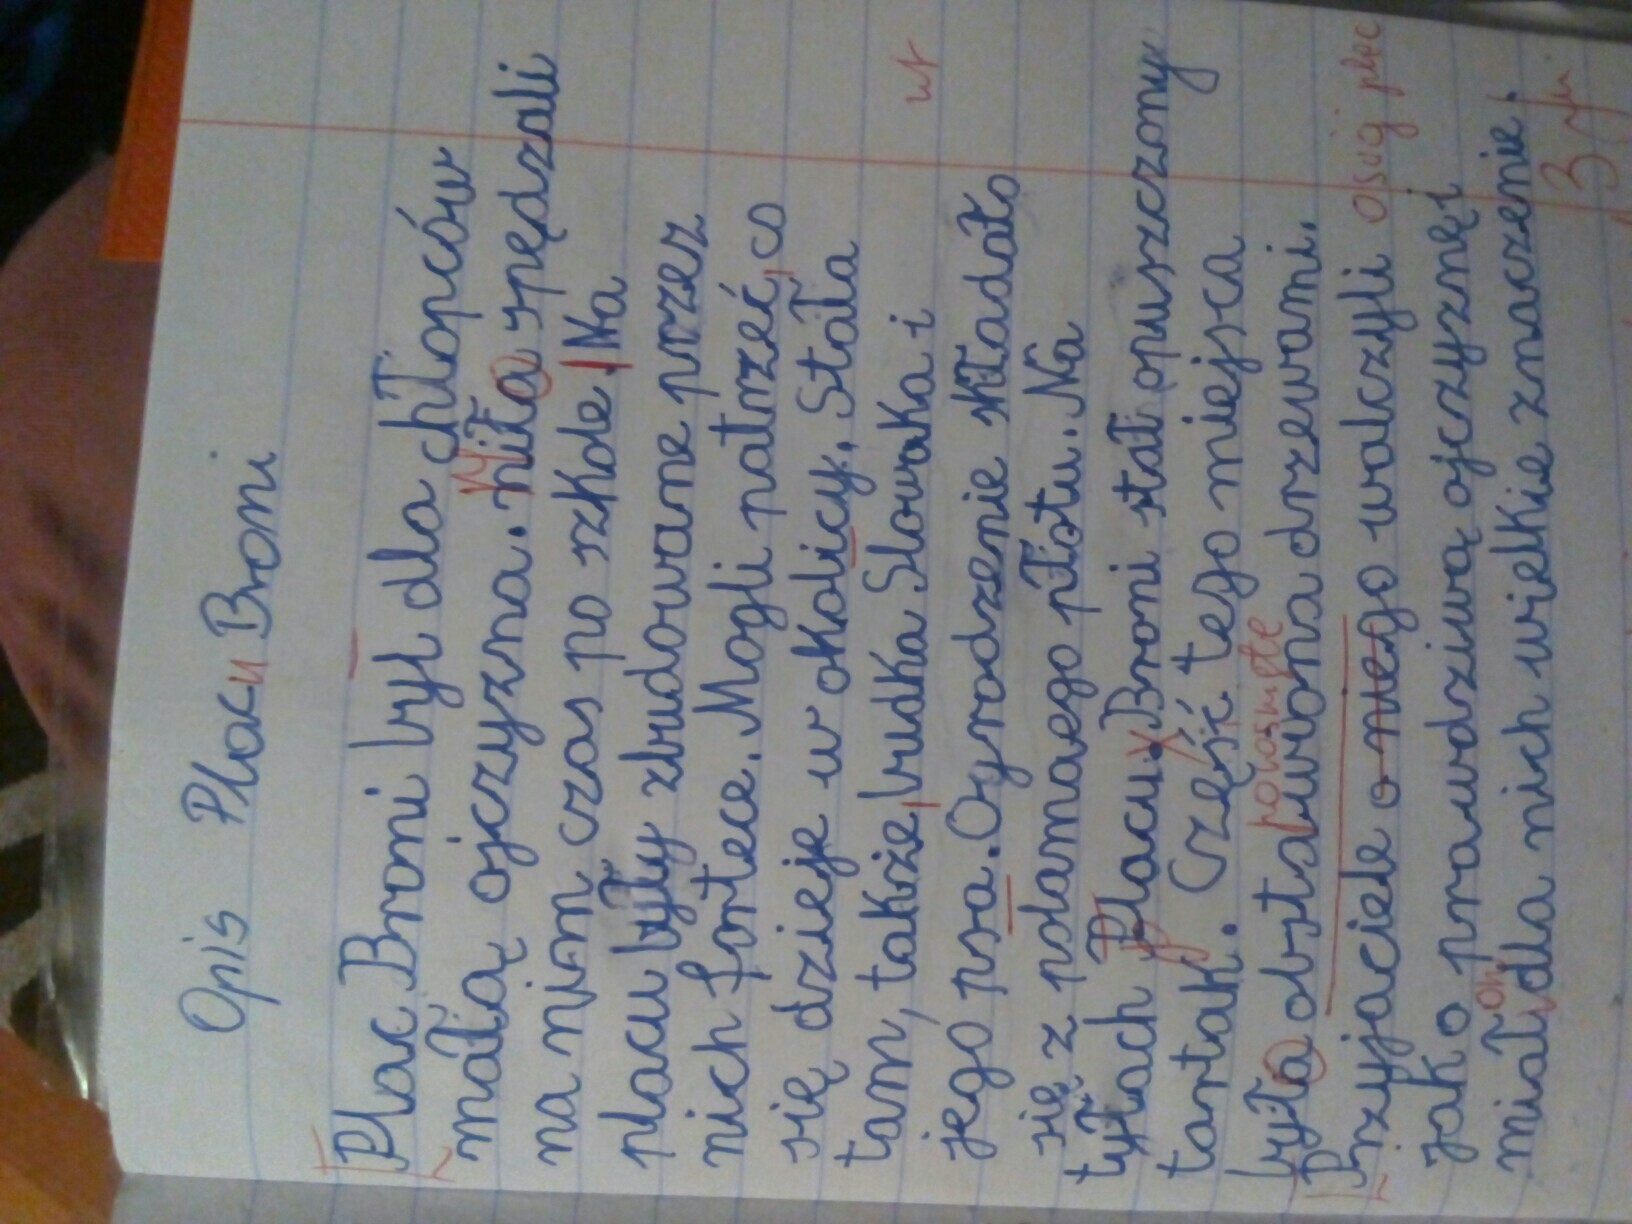 Opis Placu Broni
Plac Broni był dla chłopców
małą ojczyzną. Miła spędzali
na nim czas po szkole. Na
placu były zbudowane przez
nich fortece. Mogli patrzeć, co
się dzieje w okolicy. Stała
tam, także, budka Slovaka i
jego psa. Ogrodzenie składało
się z połamaego płotu. Na
tyłach Placu Broni stał opuszczony
tartak. Część tego miejsca
porośnięte
była obstawiona drzewami.
Przyjaciele o niego walczyli
jako prawdziwą ojczyznęi
miał on dla nich wielkie znaczenie.
3